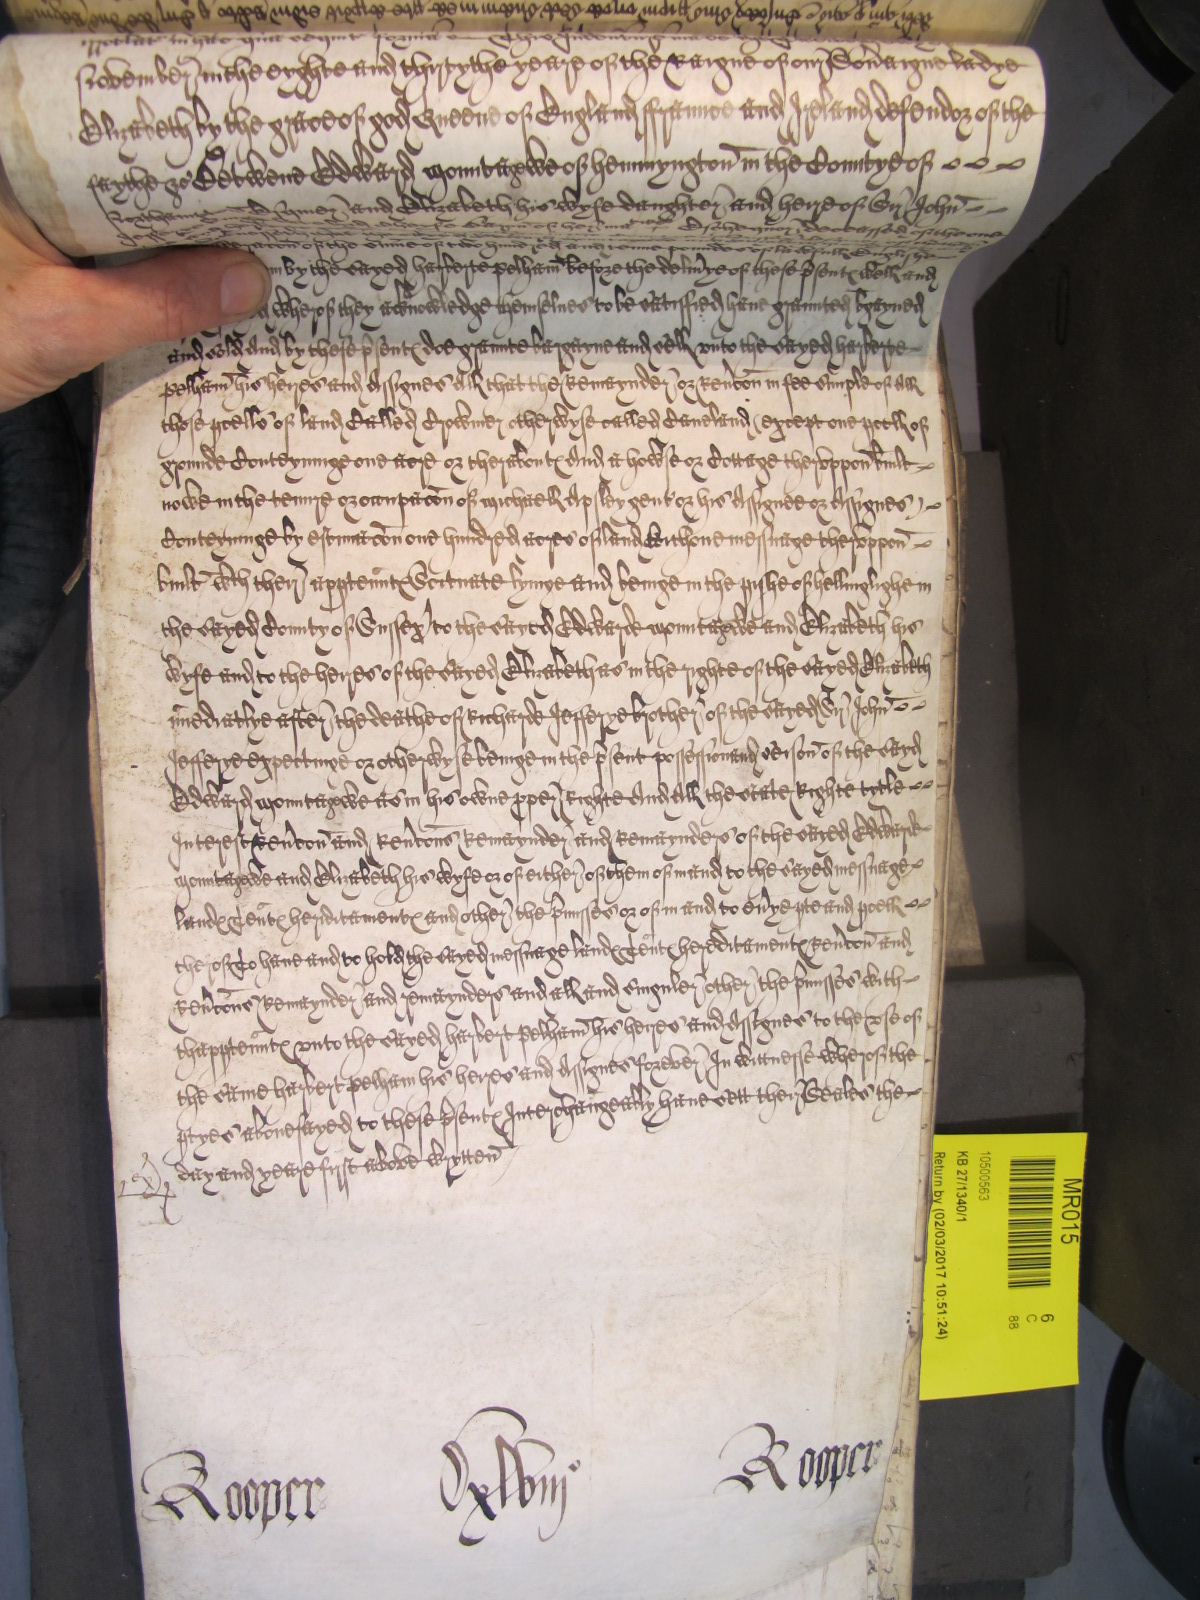 November in the eyghte and thirtythe yeare of the Raigne of our Sov̄aigne Ladye
Elizabeth by the grace of god Queene of England ffraunce and Ireland defendor of the
faythe &c Betwene Edward Mountagewe of hemmyngton in the Countye of
and Elizabeth his wyfe daughter and heire of Sr John
by the sayed harberte Pelham before the deliv̄ye of these p̄sentꝭ well and
wherof they acknowledge themselues to be satisfied haue graunted bgayned
and sold And by these p̄sentꝭ doe graunte bargayne and sell vnto the sayed harberte
Pelham his heires and Assignes All that the Remaynder or Rev̄con in fee simple of All
those pcells of land Called Crowmer otherwyse called Caneland (except one pcell of
grounde Conteyninge one acre or theraboutꝭ And a howse or Cottage thervppon built
nowe in the tenure or occupacon of Michaell Apsley gent or his Assignee or Assignes)
Conteyninge by estimacon one hundred acres of land With one messuage thervppon
built wth ther apptenntꝭ Scituate lyinge and beinge in the pishe of hellinglighe in
the sayed County of Sussex to the sayed Edwarde Mountagewe and Elizabeth his
wyfe and to the heires of the sayed Elizabeth as in the righte of the sayed Elizabeth
imediatlye after the deathe of Richarde Jefferye brother of the sayed Sr John
Jefferye expectinge or otherwyse beinge in the p̄sent possession and seison of the sayd
Edward Mountagewe as in his owne pper Righte And All the state Righte tytle
Interest Rev̄con and Rev̄cons Remaynder and Remaynders of the sayed Edwarde
Mountagewe and Elizabeth his wyfe or of either of them of in and to the sayed messuage
landꝭ Tentꝭ hereditamentꝭ and other the p̄misses or of in and to ev̄ye pte and pcell
therof To haue and to hold the sayed messuage landꝭ Tentꝭ hereditamentꝭ Rev̄con and
Rev̄cons Remaynder and remaynders and all and singuler other the p̄misses with
thapptenntꝭ vnto the sayed harbert Pelham his heires and Assignes to the vse of
the same harbert Pelham his heires and Assignes forever In wittnesse wherof the
ptyes abouesayed to these p̄sentꝭ Interchangeably haue sett their Seales the
day and yeare first above wrytten
Rooper
xlviijo
Rooper
MR015
6
C
88
10500563
KB 27/1340/1
Return by (02/03/2017 10:51:24)